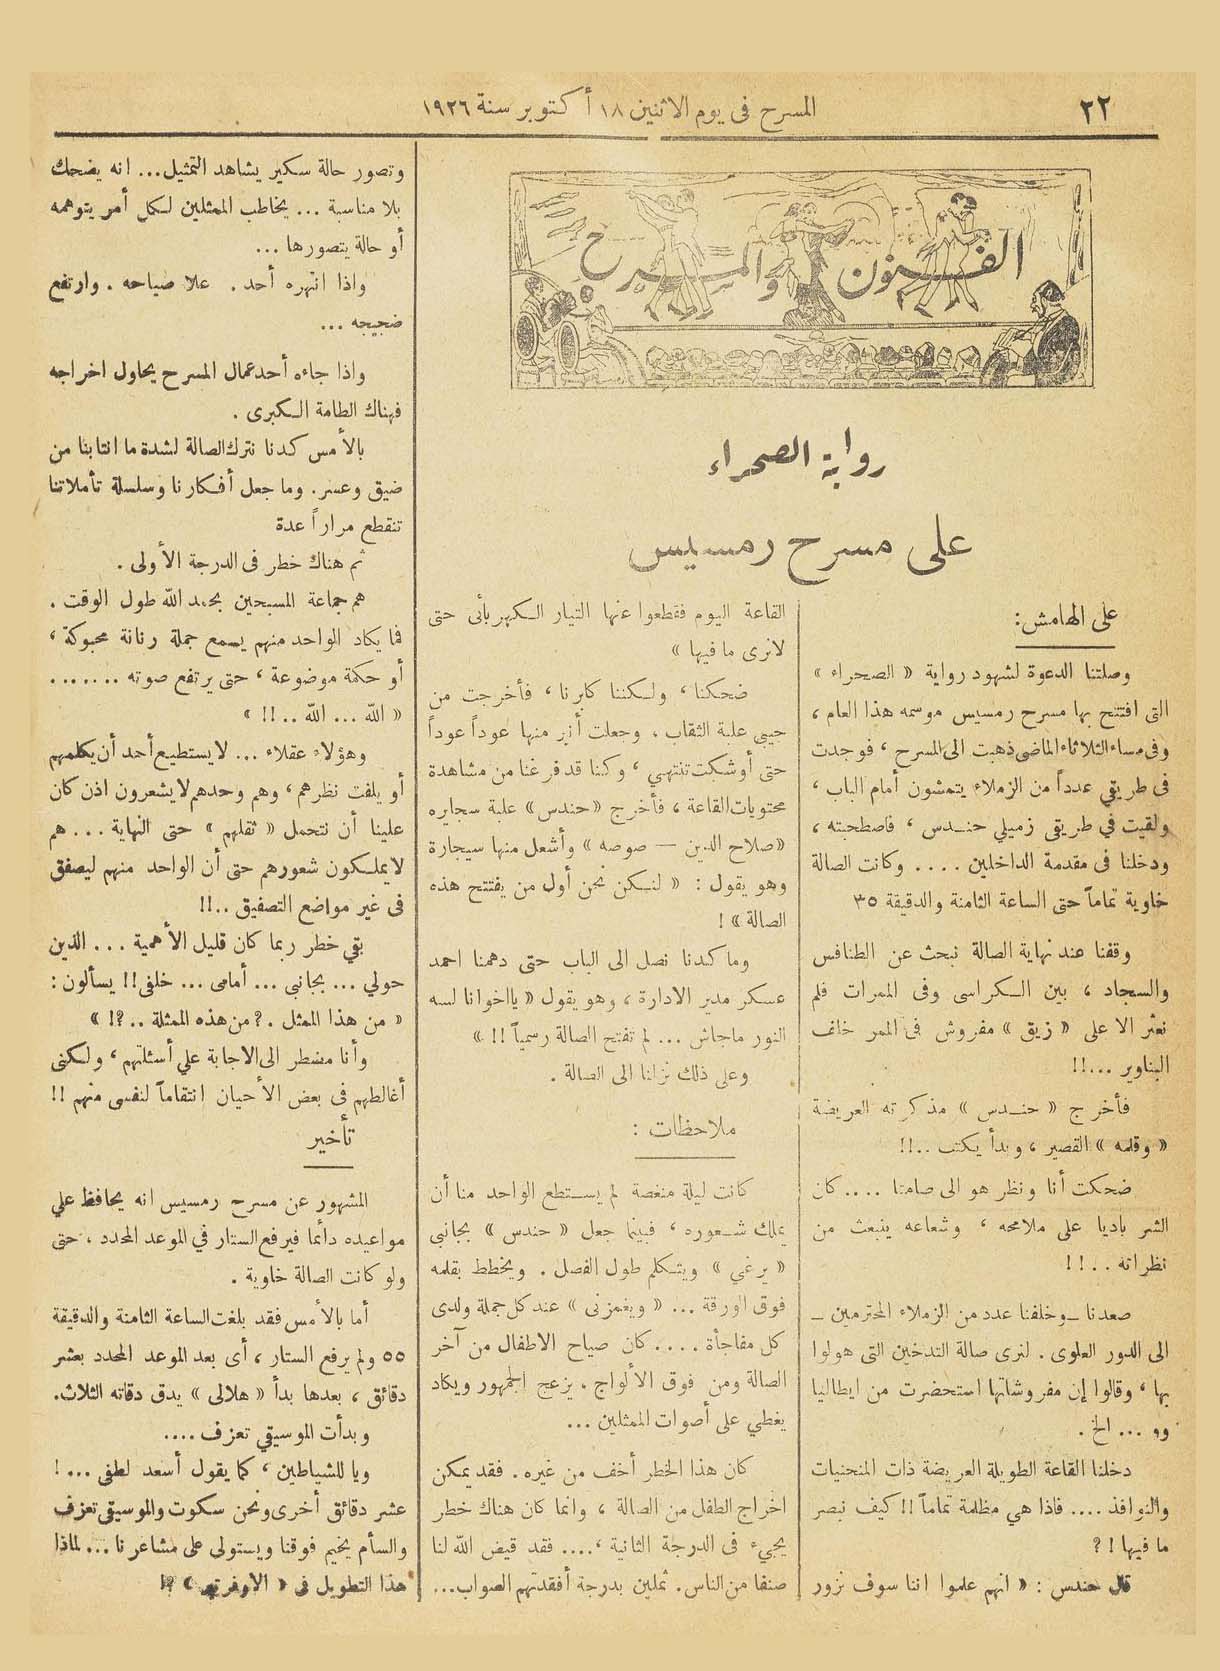 ٢٢
المسرح فى يوم الاثنين ١٨ أكتوبر سنة ١٩٢٦
الفنون والمسرح
رواية الصحراء
على مسرح رمسيس
على الهامش:
وصلتنا الدعوة لشهود رواية « الصحراء »
التى افتتح بها مسرح رمسيس موسمه هذا العام ،
وفى مساء الثلاثاء الماضى ذهبت الى المسرح ، فوجدت
فى طريقي عدداً من الزملاء يتمشون أمام الباب ،
ولقيت في طريقى زميلي حندس ، فاصطحبته ،
ودخلنا فى مقدمة الداخلين .... وكانت الصالة
خاوية تماماً حتى الساعة الثامنة والدقيقة ٣٥
وقفنا عند نهاية الصالة نبحث عن الطنافس
والسجاد ، بين الكراسى وفى الممرات فلم
نعثر الا على « زيق » مفروش فى الممر خلف
البناوير ...!!
فأخرج « حندس » مذكرته العريضة
« وقلمه » القصير ، وبدأ يكتب ..!!
ضحكت أنا ونظر هو الى صامتا .... كان
الشر باديا على ملامحه ، وشعاعه ينبعث من
نظراته ..!!
صعدنا ـ وخلفنا عدد من الزملاء المحترمين ـ
الى الدور العلوى . لنرى صالة التدخين التى هولوا
بها ، وقالوا إن مفروشاتها استحضرت من ايطاليا
وو ... الخ .
دخلنا القاعة الطويلة العريضة ذات المنحنيات
والنوافذ .... فاذا هي مظلمة تماماً !! كيف نبصر
ما فيها ! ?
قال حندس : « انهم علموا اننا سوف نزور
القاعة اليوم فقطعوا عنها التيار الكهربأئى حتى
لانرى ما فيها »
ضحكنا ، ولكننا كابرنا ، فأخرجت من
جيبى علبة الثقاب ، وجعلت أنير منها عوداً عوداً
حتى أوشكت تنتهي ، وكنا قد فرغنا من مشاهدة
محتويات القاعة ، فأخرج « حندس » علبة سجايره
« صلاح الدين — صوصه » وأشعل منها سيجارة
وهو يقول : « لنكن نحن أول من يفتتح هذه
الصالة » !
وما كدنا نصل الى الباب حتى دهمنا احمد
عسكر مدير الادارة ، وهو يقول « يا اخوانا لسه
النور ماجاش ... لم تفتح الصالة رسمياً !! »
وعلى ذلك نزلنا الى الصالة .
ملاحظات :
كانت ليلة منغصة لم يستطع الواحد منا أن
يملك شعوره ، فبينما جعل « حندس » بجانبى
« يرغي » ويتكلم طول الفصل . ويخطط بقلمه
فوق اورقة ... « ويغمزنى » عند كل جملة ولدى
كل مفاجأة .... كان صياح الاطفال من آخر
الصالة ومن فوق الألواج . يزعج الجمهور ويكاد
يغطي على أصوات الممثلين ...
كان هذا الخطر أخف من غيره . فقد يمكن
اخراج الطفل من الصالة ، وانما كان هناك خطر
يجيء فى الدرجة الثانية ، .... فقد قيض الله لنا
صنفا من الناس . ثملين بدرجة أفقدتهم الصواب...
وتصور حالة سكير يشاهد التمثيل... انه يضحك
بلا مناسبة ... يخاطب الممثلين لكل أمر يتوهمه
أو حالة يتصورها ...
واذا انتهره أحد . علا صياحه . وارتفع
ضجيجه ...
واذا جاءه أحد عمال المسرح يحاول اخراجه
فهناك الطامة الكبرى .
بالأمس كدنا نترك الصالة لشدة ما انتابنا من
ضيق وعسر . وما جعل أفكارنا وسلسلة تأملاتنا
تنقطع مراراً عدة
ثم هناك خطر فى الدرجة الأولى .
هم جماعة المسبحين بحمد الله طول الوقت .
فما يكاد الواحد منهم يسمع جملة رنانة محبوكة ،
أو حكمة موضوعة ، حتى يرتفع صوته .......
« الله ... الله ..!! »
وهؤلاء عقلاء ... لا يستطيع أحد أن يكلمهم
أو يلفت نظرهم ، وهم وحدهم لا يشعرون اذن كان
علينا أن نتحمل « ثقلهم » حتى النهاية ... هم
لا يملكون شعورهم حتى أن الواحد منهم ليصفق
فى غير مواضع التصفيق ..!!
بقي خطر ربما كان قليل الأهمية ... الذين
حولي ... بجانبى ... أمامى ... خلفى !! يسألون :
« من هذا الممثل .? من هذه الممثلة ..?! »
وأنا مضطر الى الاجابة علي أسئلتهم ، ولكنى
أغالطهم فى بعض الأحيان انتقاماً لنفسى منهم !!
تأخير
المشهور عن مسرح رمسيس انه يحافظ علي
مواعيده دائما فيرفع الستار في الموعد المحدد ، حتى
ولو كانت الصالة خاوية .
أما بالأمس فقد بلغت الساعة الثامنة والدقيقة
٥٥ ولم يرفع الستار ، أى بعد الموعد المحدد بعشر
دقائق ، بعدها بدأ « هلالى » يدق دقاته الثلاث.
وبدأت الموسيقي تعزف ....
ويا للشياطين ، كما يقول أسعد لطفى ... !
عشر دقائق أخرى ونحن سكوت والموسيقى تعزف
والسأم يخيم فوقنا ويستولى على مشاعرنا ... لماذا
هذا التطويل فى « الاوفرتير » ?!